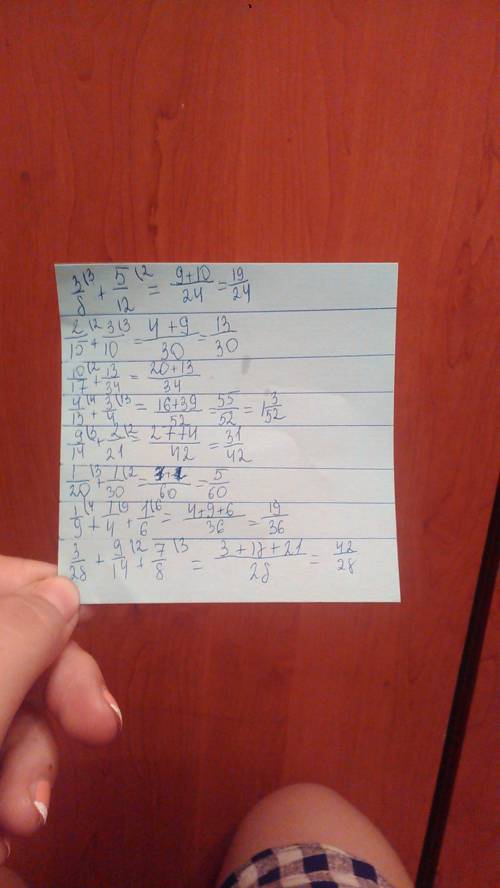 3/8 (3 + 5/12 (2 = 9+10/24 = 19/24
2/15 (2 + 3/10 (3 = 4+9/30 = 13/30
10/17 (2 + 13/34 = 20+13/34
4/13 (4 + 3/4 (13 = 16+39/52 = 55/52 = 1 3/52
9/14 (3 + 2/21 (2 = 27+4/42 = 31/42
1/20 (3 + 1/30 (2 = 60 = 5/60
1/9 (4 + 1/4 (9 + 1/6 (6 = 4+9+6/36 = 19/36
3/28 + 9/14 (2 + 7/8 (3 = 3+18+21/28 = 42/28